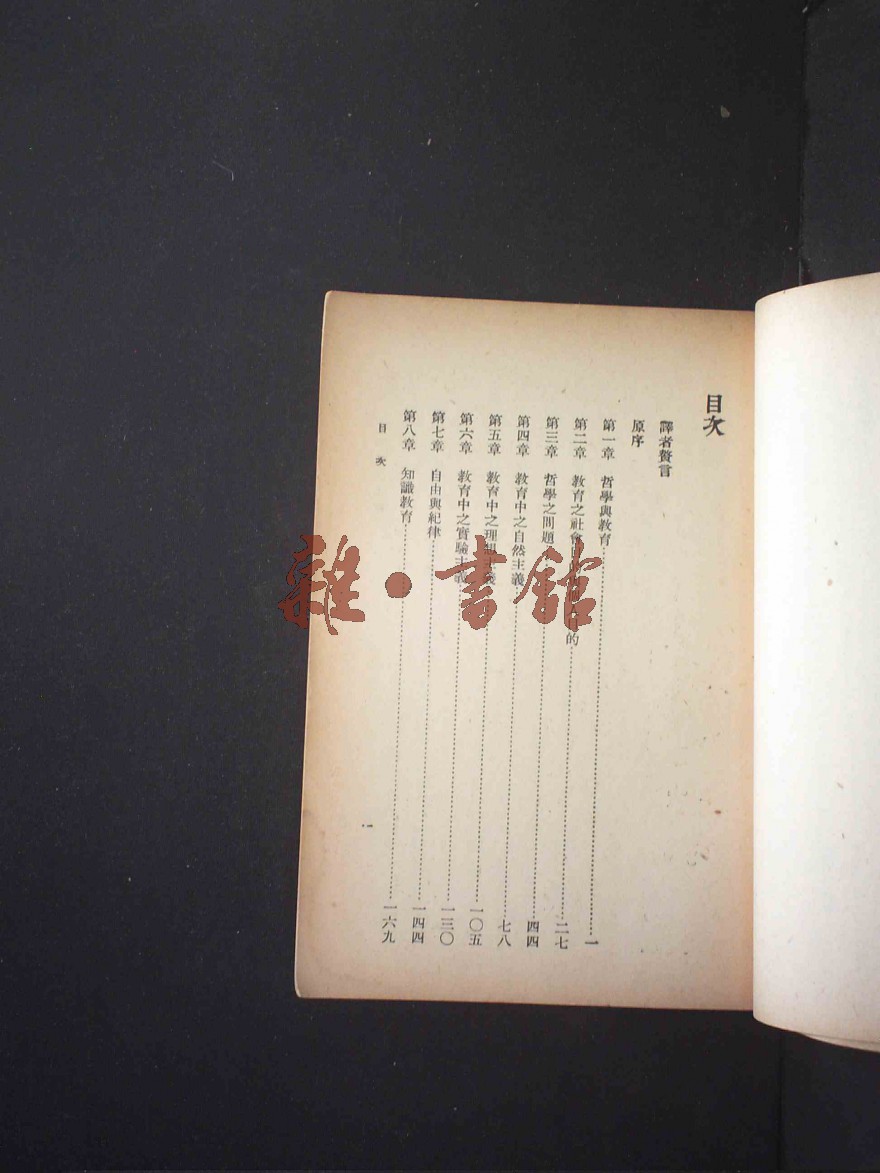 目次
譯者贅言
原序
第一章 哲學與教育……一
第二章 教育之社會 的……二七
第三章 哲學之問題……四四
第四章 教育中之自然主義……七八
第五章 教育中之理想主義……一〇五
第六章 教育中之實驗主義……一三〇
第七章 自由與紀律……一四四
第八章 知識教育……一六九
目次
一
雜·書館